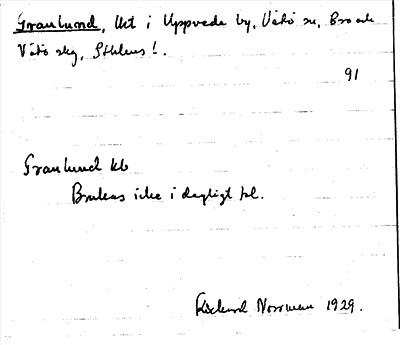 Granlund, lht i Uppveda by, Vätö sn, Bro och
Vätö skg, Sthlms l.
91
Granlund kb
Brukas icke i dagligt tal.
Rickard Norrman 1929.